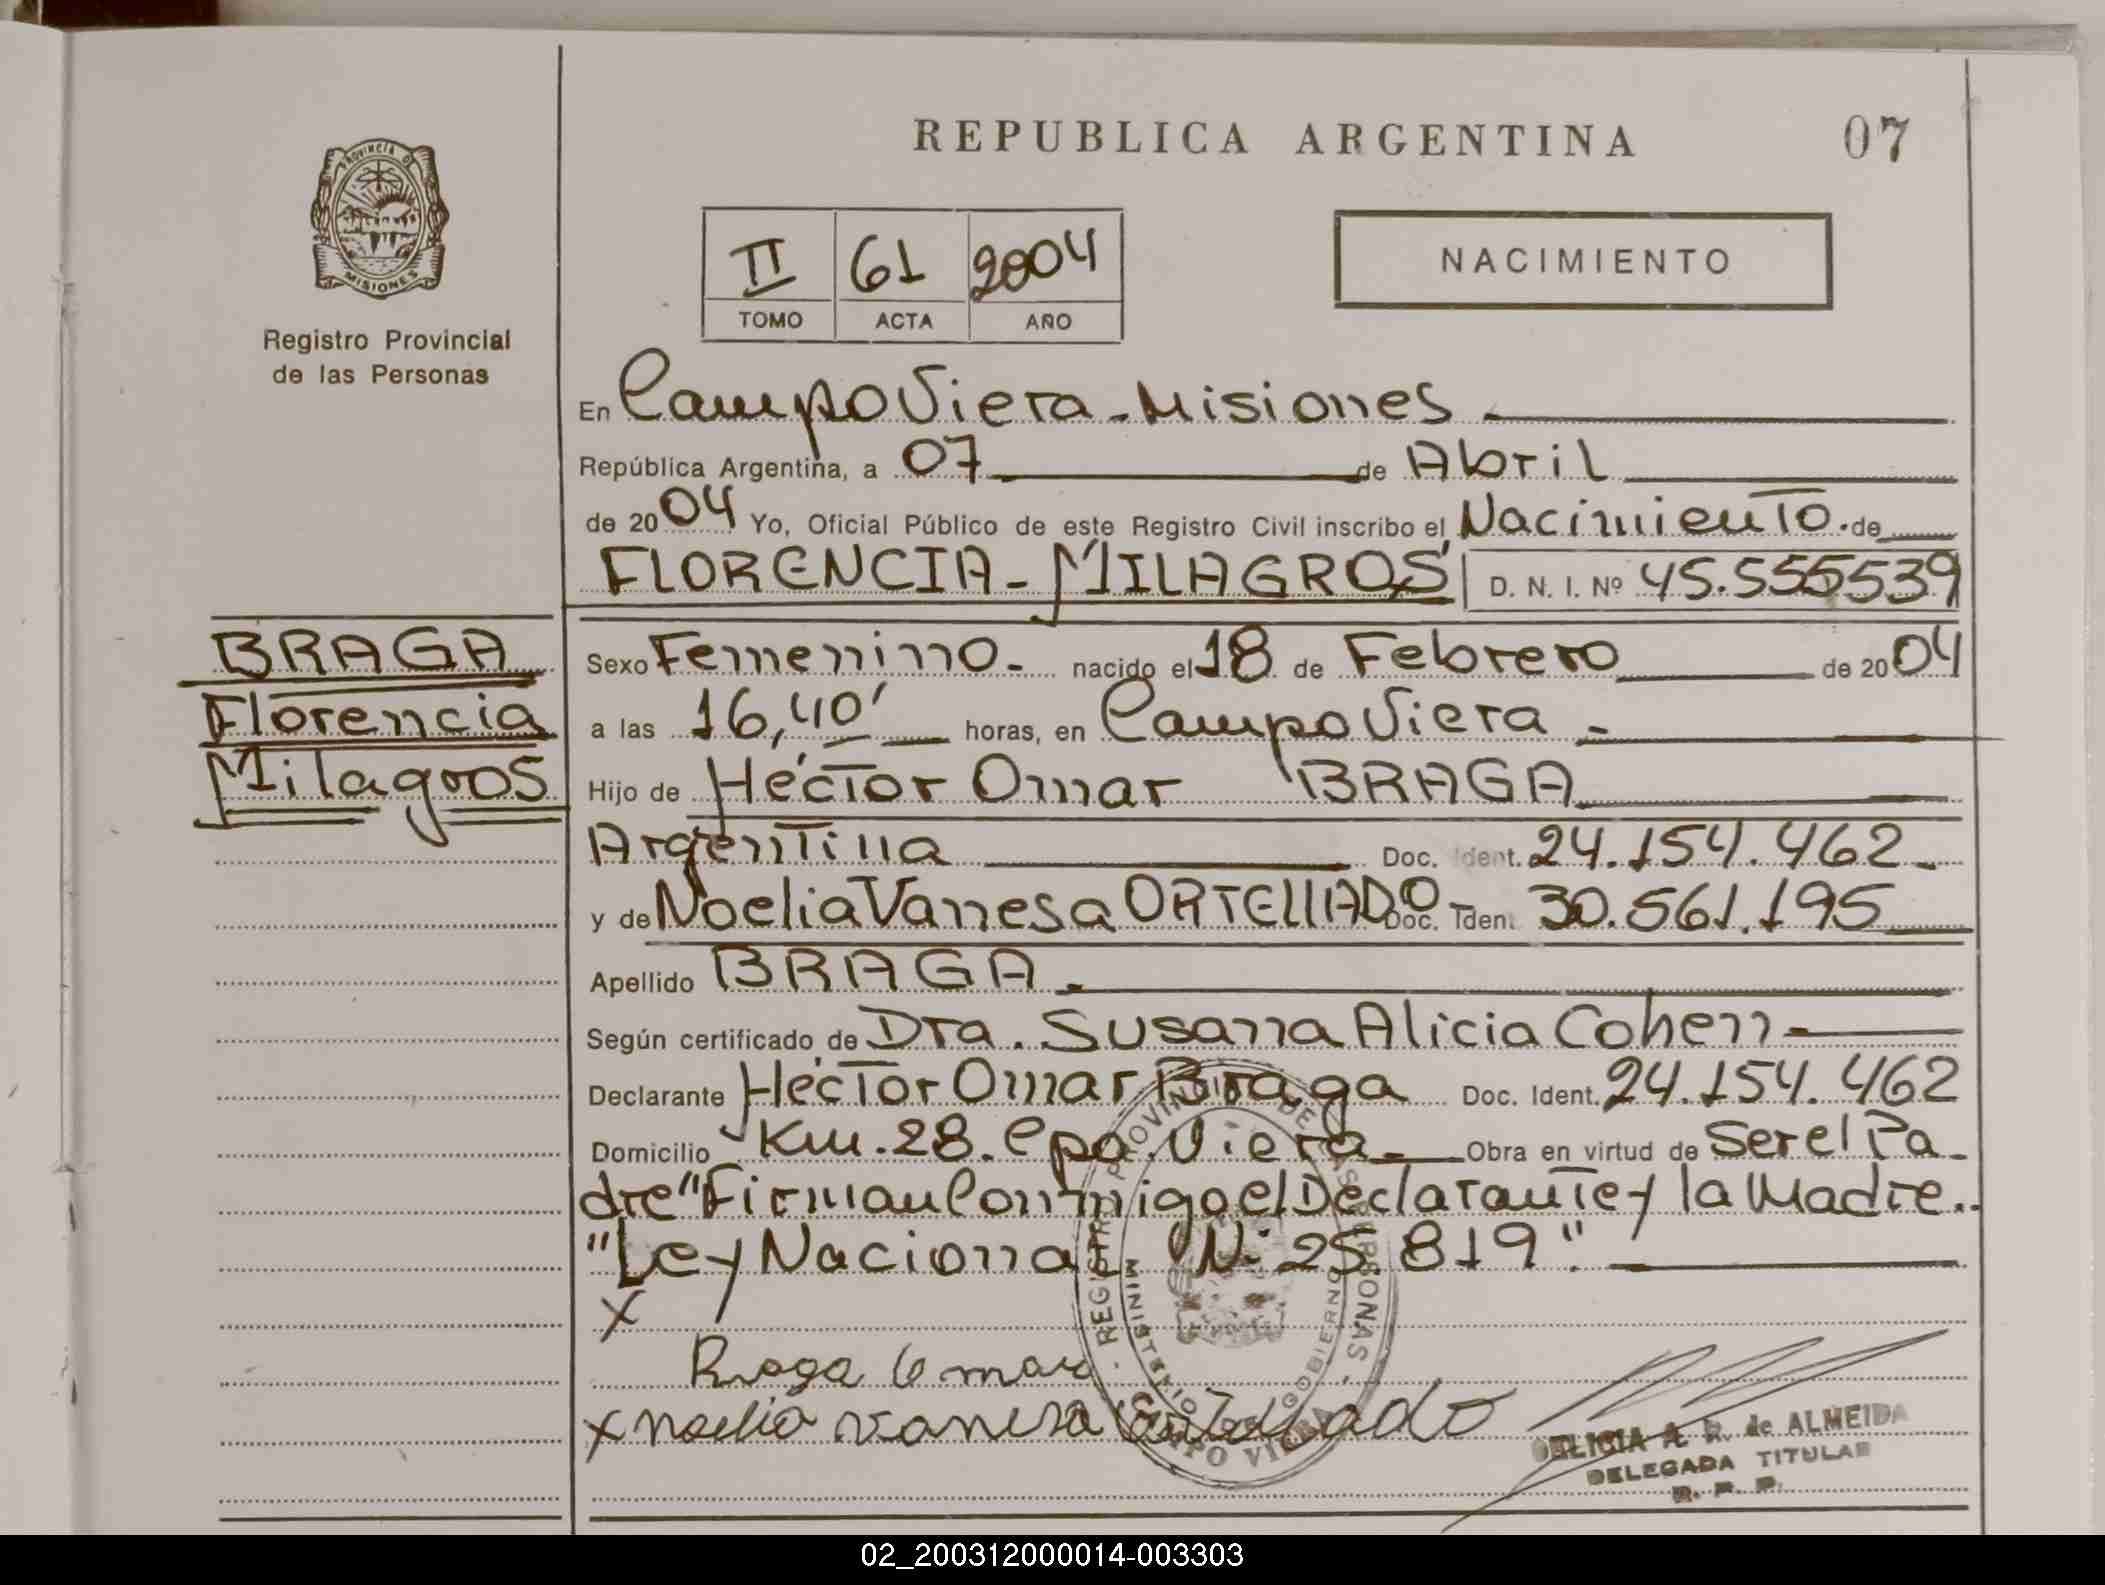 REPUBLICA ARGENTINA
07
PROVINCIA DE MISIONES
Registro Provincial
de las Personas
II 61 2004
TOMO ACTA AÑO
NACIMIENTO
En Campo Viera - Misiones -
República Argentina, a 07 de Abril
de 2004 Yo, Oficial Público de este Registro Civil inscribo el Nacimiento. de
FLORENCIA - MILAGROS D. N. I. Nº 45.555539
BRAGA
Florencia
Milagros
Sexo Femenino - nacido el 18 de Febrero de 2004
a las 16,40' horas, en Campo Viera -
Hijo de Héctor Omar BRAGA
Argentina Doc. Ident. 24.154.462 -
y de Noelia Vanesa ORTELLADO - Doc. Iden. 30.561.195
Apellido BRAGA -
Según certificado de Dra. Susana Alicia Cohen -
Declarante Héctor Omar Braga Doc. Ident. 24.154.462
Domicilio Km. 28. Cpo. Viera - Obra en virtud de Ser el Pa-
dre "Firman Conmigo el Declarante y la Madre..
"Ley Nacional Nº 25.819"
X
Braga Omar
x noelia vanesa Ortellado
REGISTRO PROVINCIAL DE LAS PERSONAS
MINISTERIO DE GOBIERNO
CAMPO VIERA
DELICIA A. R. de ALMEIDA
DELEGADA TITULAR
R. P. P.
02_200312000014-003303